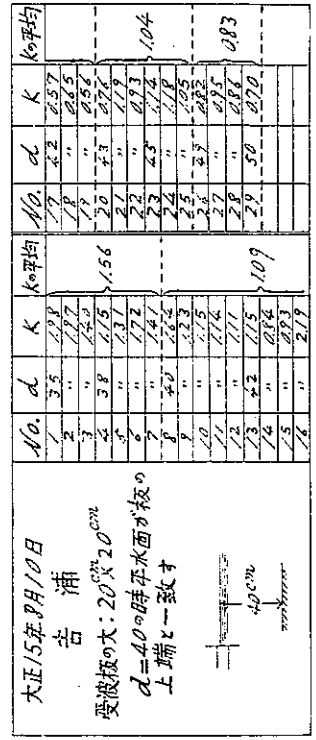 大正15年8月10日
吉浦
受波板の大:20cm×20cm
d=40の時平水面が板の
上端と一致す
40cm
No. d K Kの平均
1 35 1.98
2 " 1.97
3 " 1.40
4 38 1.15 1.56
5 " 1.31
6 " 1.72
7 " 1.41
8 40 1.64
9 " 1.23
10 " 1.15
11 " 1.14
12 " 1.11 1.09
13 42 1.15
14 " 0.84
15 " 0.93
16 " 2.19
No. d K Kの平均
17 42 0.57
18 " 0.65
19 " 0.56
20 43 0.76
21 " 1.19
22 " 0.93 1.04
23 45 1.14
24 " 1.18
25 " 1.05
26 49 0.82
27 " 0.95 0.83
28 " 0.86
29 50 0.70